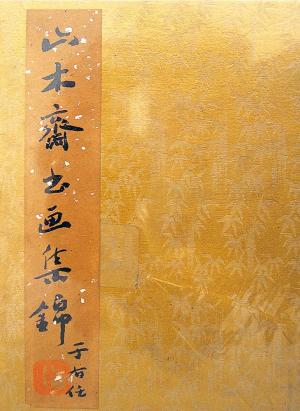 木齋书画集錦
于右任